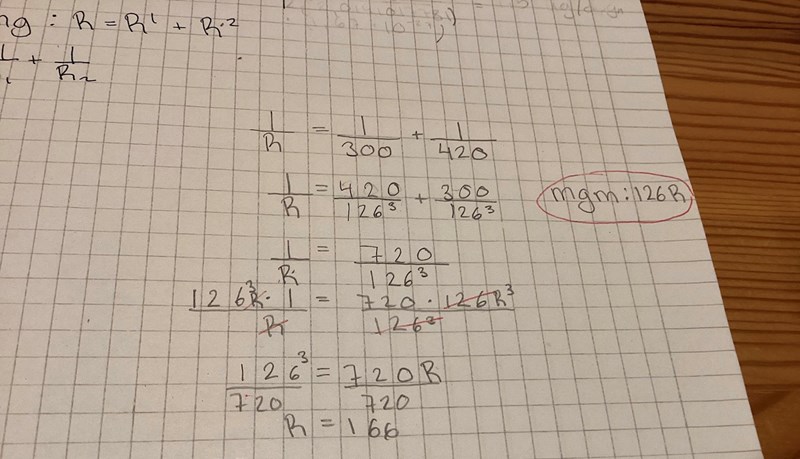 ng : R = R¹ + R·²
+ 1/R₂
1/R = 1/300 + 1/420
1/R = 420/126³ + 300/126³
mgm: 126R
1/R = 720/126³
126³R · 1/R = 720 · 126R³/126³
126³/720 = 720R/720
R = 166